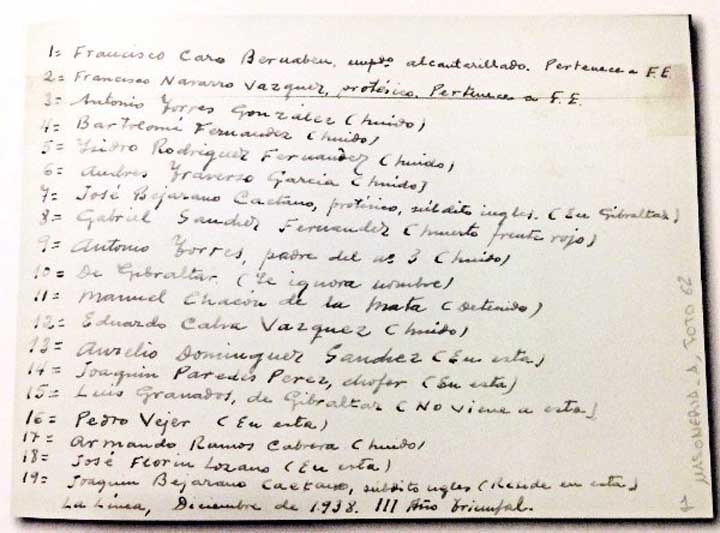 1= Francisco Caro Bernabeu, empdo alcantarillado. Pertenece a F.E.
2= Francisco Navarro Vazquez, protésico. Pertenece a F.E.
3= Antonio Torres González (huido)
4= Bartolomé Fernandez (huido)
5= Ysidro Rodriguez Fernandez (huido)
6= Andres Traverso Garcia (huido)
7= José Bejarano Caetano, protésico, súbdito ingles. (En Gibraltar)
8= Gabriel Sanchez Fernandez (muerto frente rojo)
9= Antonio Torres, padre del nº 3 (huido)
10= De Gibraltar. (Se ignora nombre)
11= Manuel Chacon de la Mata (Detenido)
12= Eduardo Calva Vazquez (huido)
13= Aurelio Dominguez Sanchez (En esta)
14= Joaquin Paredes Perez, chofer (En esta)
15= Luis Granados, de Gibraltar (No viene a esta)
16= Pedro Vejer (En esta)
17= Armando Ramos Cabrera (huido)
18= José Florin Lozano (En esta)
19= Joaquin Bejarano Caetano, súbdito ingles (Reside en esta)
La Línea, Diciembre de 1.938. III Año Triunfal.
MASONERIA_A, FOTO 62